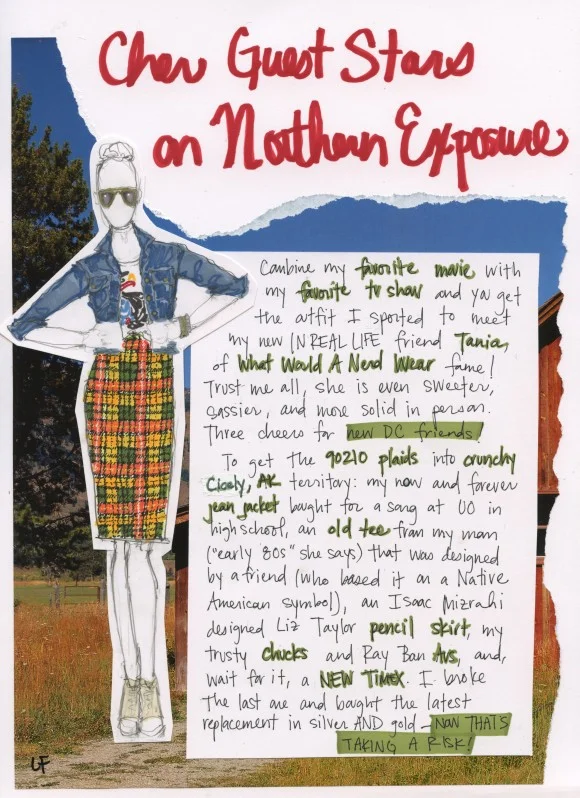 Cher Guest Stars
on Northern Exposure
Combine my favorite movie with
my favorite tv show and you get
the outfit I sported to meet
my new IN REAL LIFE friend Tania,
of What Would A Nerd Wear fame!
Trust me all, she is even sweeter,
sassier, and more solid in person.
Three cheers for new DC friends!
To get the 90210 plaids into crunchy
Cicely, AK territory: my now and forever
jean jacket bought for a song at UO in
highschool, an old tee from my mom
("early 80s" she says) that was designed
by a friend (who based it on a Native
American symbol), an Isaac Mizrahi
designed Liz Taylor pencil skirt, my
trusty chucks and Ray Ban Avs, and,
wait for it, a NEW TIMEX. I broke
the last one and bought the latest
replacement in silver AND gold - NOW THAT'S
TAKING A RISK!
LF